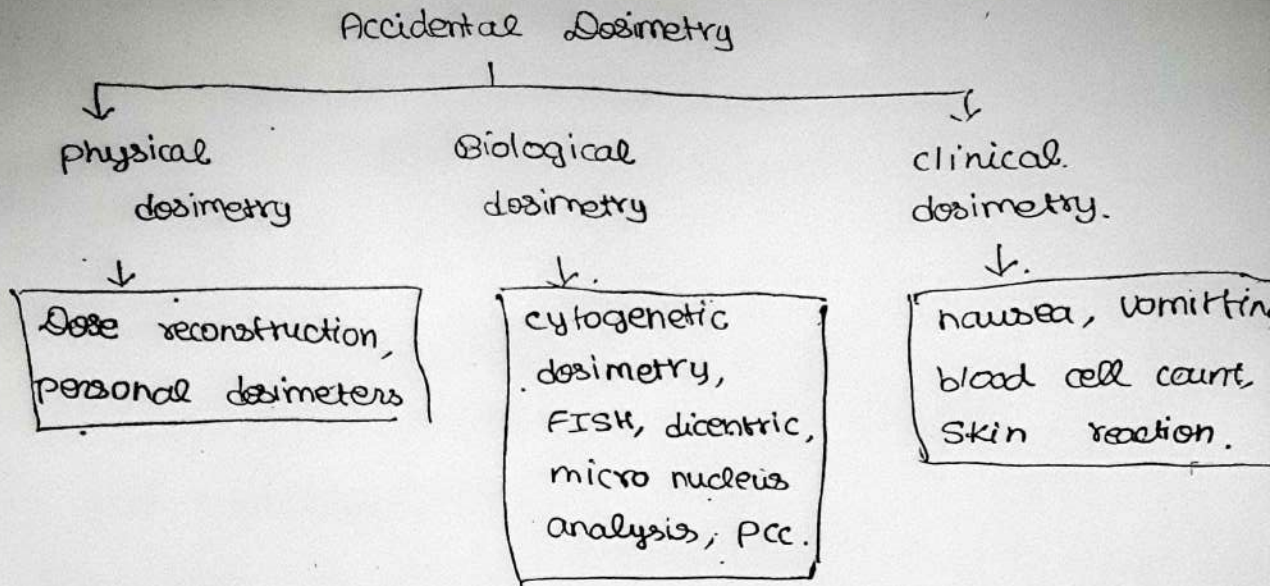 Accidental Dosimetry
physical
dosimetry
Biological
dosimetry
clinical.
dosimetry.
Dose reconstruction,
personal dosimeters
cytogenetic
dosimetry,
FISH, dicentric,
micro nucleus
analysis, PCC.
nausea, vomittin
blood cell count,
Skin reaction.